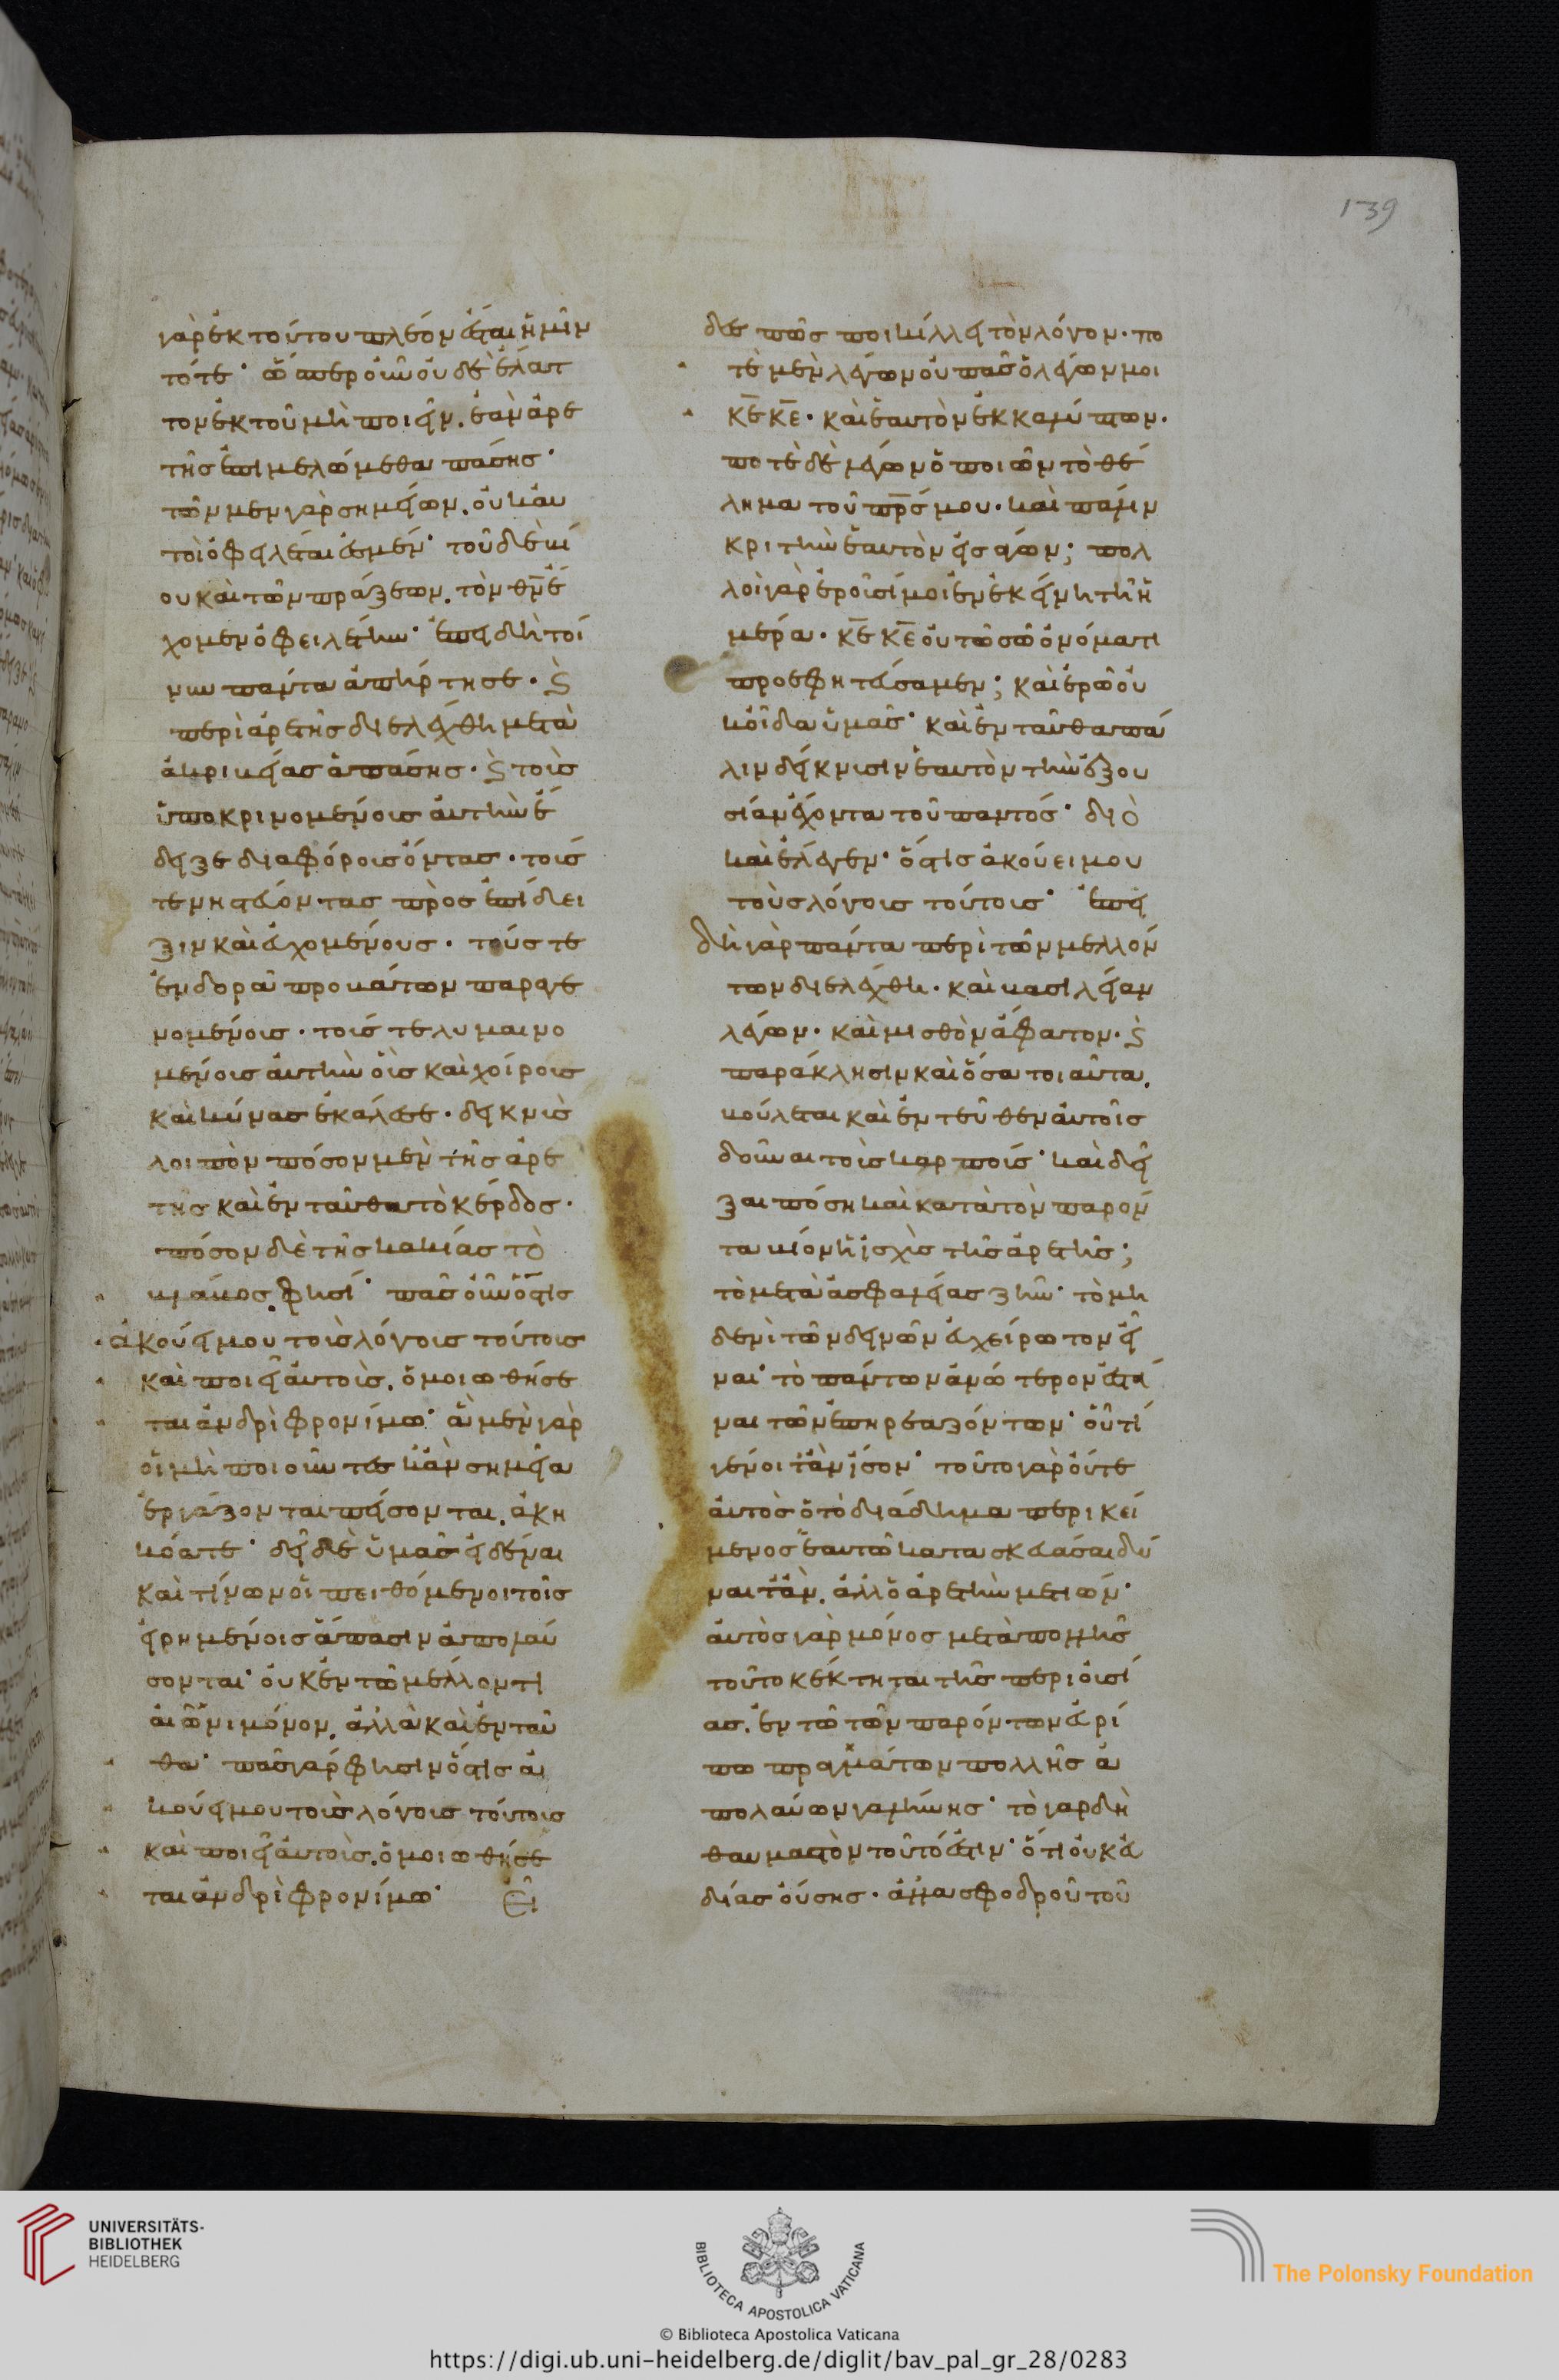 139
γὰρ ἐκ τούτου πλέον ἔσται ἡμῖν
τότε· ὥσπερ οὖν οὐδὲ ἔλατ
τον ἐκ τοῦ μὴ ποιεῖν, ἐὰν ἀρε
τῆς ἐπιμελώμεθα πάσης·
τῶν μὲν γὰρ σημείων, οὐκ αὐ
τοὶ ὀφειλέται ἐσμέν· τοῦ δὲ βί
ου καὶ τῶν πράξεων, τὸν θ̅ν̅ ἔ
χομεν ὀφειλέτην· ἐπειδὴ τοί
νυν πάντα ἀπήρτησε· καὶ
περὶ ἀρετῆς διελέχθη μετὰ
ἀκριβείας ἁπάσης· καὶ τοὺς
ὑποκρινομένους αὐτὴν ἔ
δειξε διαφόρους ὄντας· τούς
τε νηστεύοντας πρὸς ἐπίδει
ξιν καὶ εὐχομένους· τούς τε
ἐν δορᾷ προβάτων παραγε
νομένους· τούς τε λυμαινο
μένους αὐτὴν οὓς καὶ χοίρους
καὶ κύνας ἐκάλεσε· δεικνὺς
λοιπὸν πόσον μὲν τῆς ἀρε
τῆς καὶ ἐνταῦθα τὸ κέρδος·
πόσον δὲ τῆς κακίας τὸ
βλάβος φησί· πᾶς οὖν ὅστις
ἀκούει μου τοὺς λόγους τούτους
καὶ ποιεῖ αὐτοὺς, ὁμοιωθήσε
ται ἀνδρὶ φρονίμῳ· ἃ μὲν γὰρ
οἱ μὴ ποιοῦντες κἂν σημεῖα
ἐργάζονται πείσονται, ἀκη
κόατε· δεῖ δὲ ὑμᾶς εἰδέναι
καὶ τίνων οἱ πειθόμενοι τοῖς
εἰρημένοις ἅπασιν ἀπολαύ
σονται· οὐκ ἐν τῷ μέλλοντι
αἰῶνι μόνον, ἀλλὰ καὶ ἐνταῦ
θα· πᾶς γάρ φησιν ὅστις ἀ
κούει μου τοὺς λόγους τούτους
καὶ ποιεῖ αὐτοὺς, ὁμοιωθήσε
ται ἀνδρὶ φρονίμῳ· Εἶ
δες πῶς ποικίλλει τὸν λόγον· πο
τὲ μὲν λέγων οὐ πᾶς ὁ λέγων μοι
κ̅ε̅ κ̅ε̅· καὶ ἑαυτὸν ἐκκαλύπτων·
ποτὲ δὲ λέγων ὁ ποιῶν τὸ θέ
λημα τοῦ π̅ρ̅ς μου· καὶ πάλιν
κριτὴν ἑαυτὸν εἰσάγων; πολ
λοὶ γὰρ ἐροῦσί μοι ἐν ἐκείνῃ τῇ ἡ
μέρα· κ̅ε̅ κ̅ε̅ οὐ τῷ σῷ ὀνόματι
προεφητεύσαμεν; καὶ ἐρῶ οὐ
κ οἶδα ὑμᾶς· καὶ ἐνταῦθα πά
λιν δείκνυσιν ἑαυτὸν τὴν ἐξου
σίαν ἔχοντα τοῦ παντός· διὸ
καὶ ἔλεγεν· ὅστις ἀκούει μου
τοὺς λόγους τούτους· ἐπει
δὴ γὰρ πάντα περὶ τῶν μελλόν
των διελέχθη· καὶ βασιλείαν
λέγων· καὶ μισθὸν ἄφατον· καὶ
παράκλησιν καὶ ὅσα τοιαῦτα,
βούλεται καὶ ἐντεῦθεν αὐτοῖς
δοῦναι τοὺς καρπούς· καὶ δεῖ
ξαι πόση καὶ κατὰ τὸν παρόν
τα βίον ἡ ἰσχὺς τῆς ἀρετῆς;
τὸ μετὰ ἀσφαλείας ζῆν· τὸ μη
δενὶ τῶν δεινῶν εὐχείρωτον εἶ
ναι· τὸ πάντων ἀνώτερον ἑστά
ναι τῶν ἐπηρεαζόντων· οὗ τί
γένοιτ' ἂν ἴσον· τοῦτο γὰρ οὔτε
αὐτὸς ὁ τὸ διάδημα περικεί
μενος ἑαυτῷ κατασκευάσαι δύ
ναιτ' ἂν, ἀλλ' ὁ ἀρετὴν μετιών·
αὐτὸς γὰρ μόνος μετὰ πολλῆς
τοῦτο κέκτηται τῆς περιουσί
ας, ἐν τῷ τῶν παρόντων εὐρί
πῳ πραγμάτων πολλῆς ἀ
πολαύων γαλήνης· τὸ γαρ δὴ
θαυμαστὸν τοῦτό ἐστιν· ὅτι οὐκ εὐ
δίας οὔσης· ἀλλὰ σφοδροῦ τοῦ
UNIVERSITÄTS-
BIBLIOTHEK
HEIDELBERG
BIBLIOTECA APOSTOLICA VATICANA
The Polonsky Foundation
© Biblioteca Apostolica Vaticana
https://digi.ub.uni-heidelberg.de/diglit/bav_pal_gr_28/0283